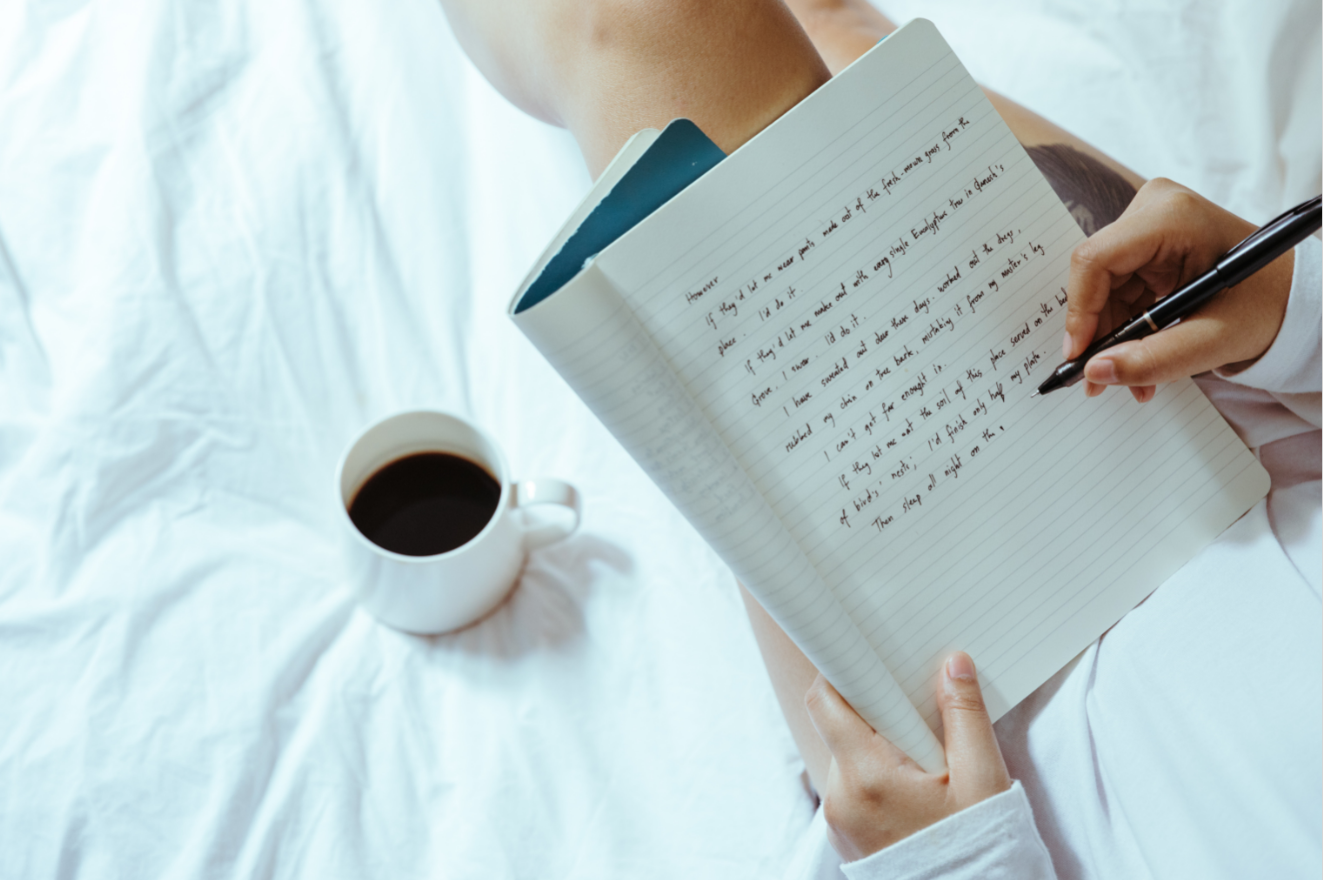 However
If they'd let me wear pants made out of the fresh-mown grass from the
place. I'd do it.
If they'd let me make out with every single Eucalyptus tree in Ganesh's
Grove. I swear. I'd do it.
I have sweated out dear them days. worked out the dregs,
rubbed my chin on tree bark, mistaking it from my master's leg
I can't get far enough in.
If they let me eat the soil of this place served on the
of birds' nests; I'd finish only half my plate.
Then sleep all night on the